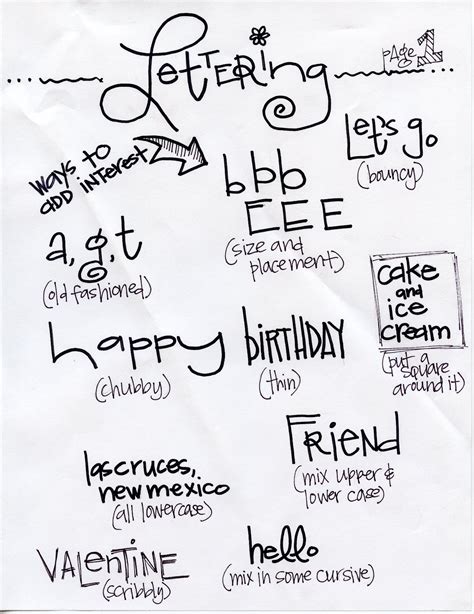 LeTTERing
PAGE 1
Let's go
(bouncy)
WAYS to
ADD INTEREST
bbb
EEE
(size and
placement)
a, g, t
(old fashioned)
cake
and
ice
cream
(put a
square
around it)
happy
(chubby)
BIRTHDAY
(thin)
FRiend
(mix upper &
lower case)
las cruces,
new mexico
(all lowercase)
VALeNTINE
(scribbly)
hello
(mix in some cursive)